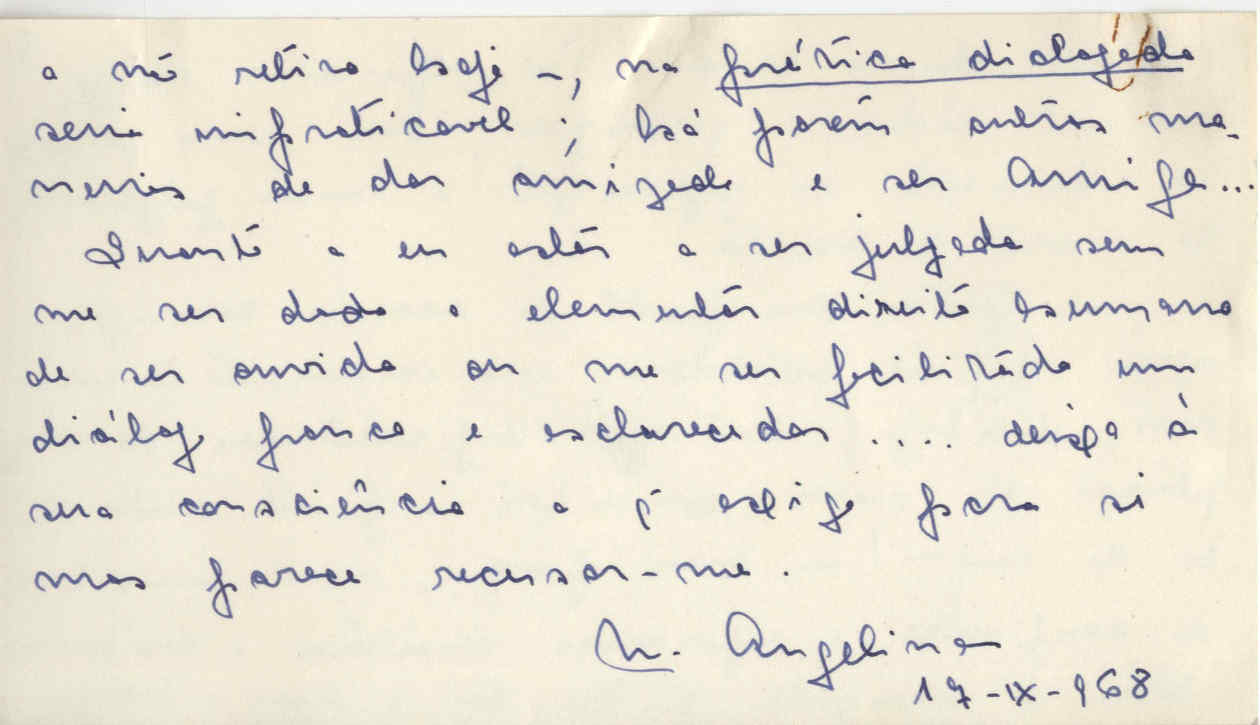 a não retiro hoje –, na prática dialogada
seria impraticável; há porém outras ma-
neiras de dar amizade e ser Amiga...
Quanto a eu estar a ser julgada sem
me ser dado o elementar direito humano
de ser ouvida ou me ser facilitado um
diálogo franco e esclarecedor .... deixo à
sua consciência o q exige para si
mas parece recusar-me.
M. Angelina
17-IX-968